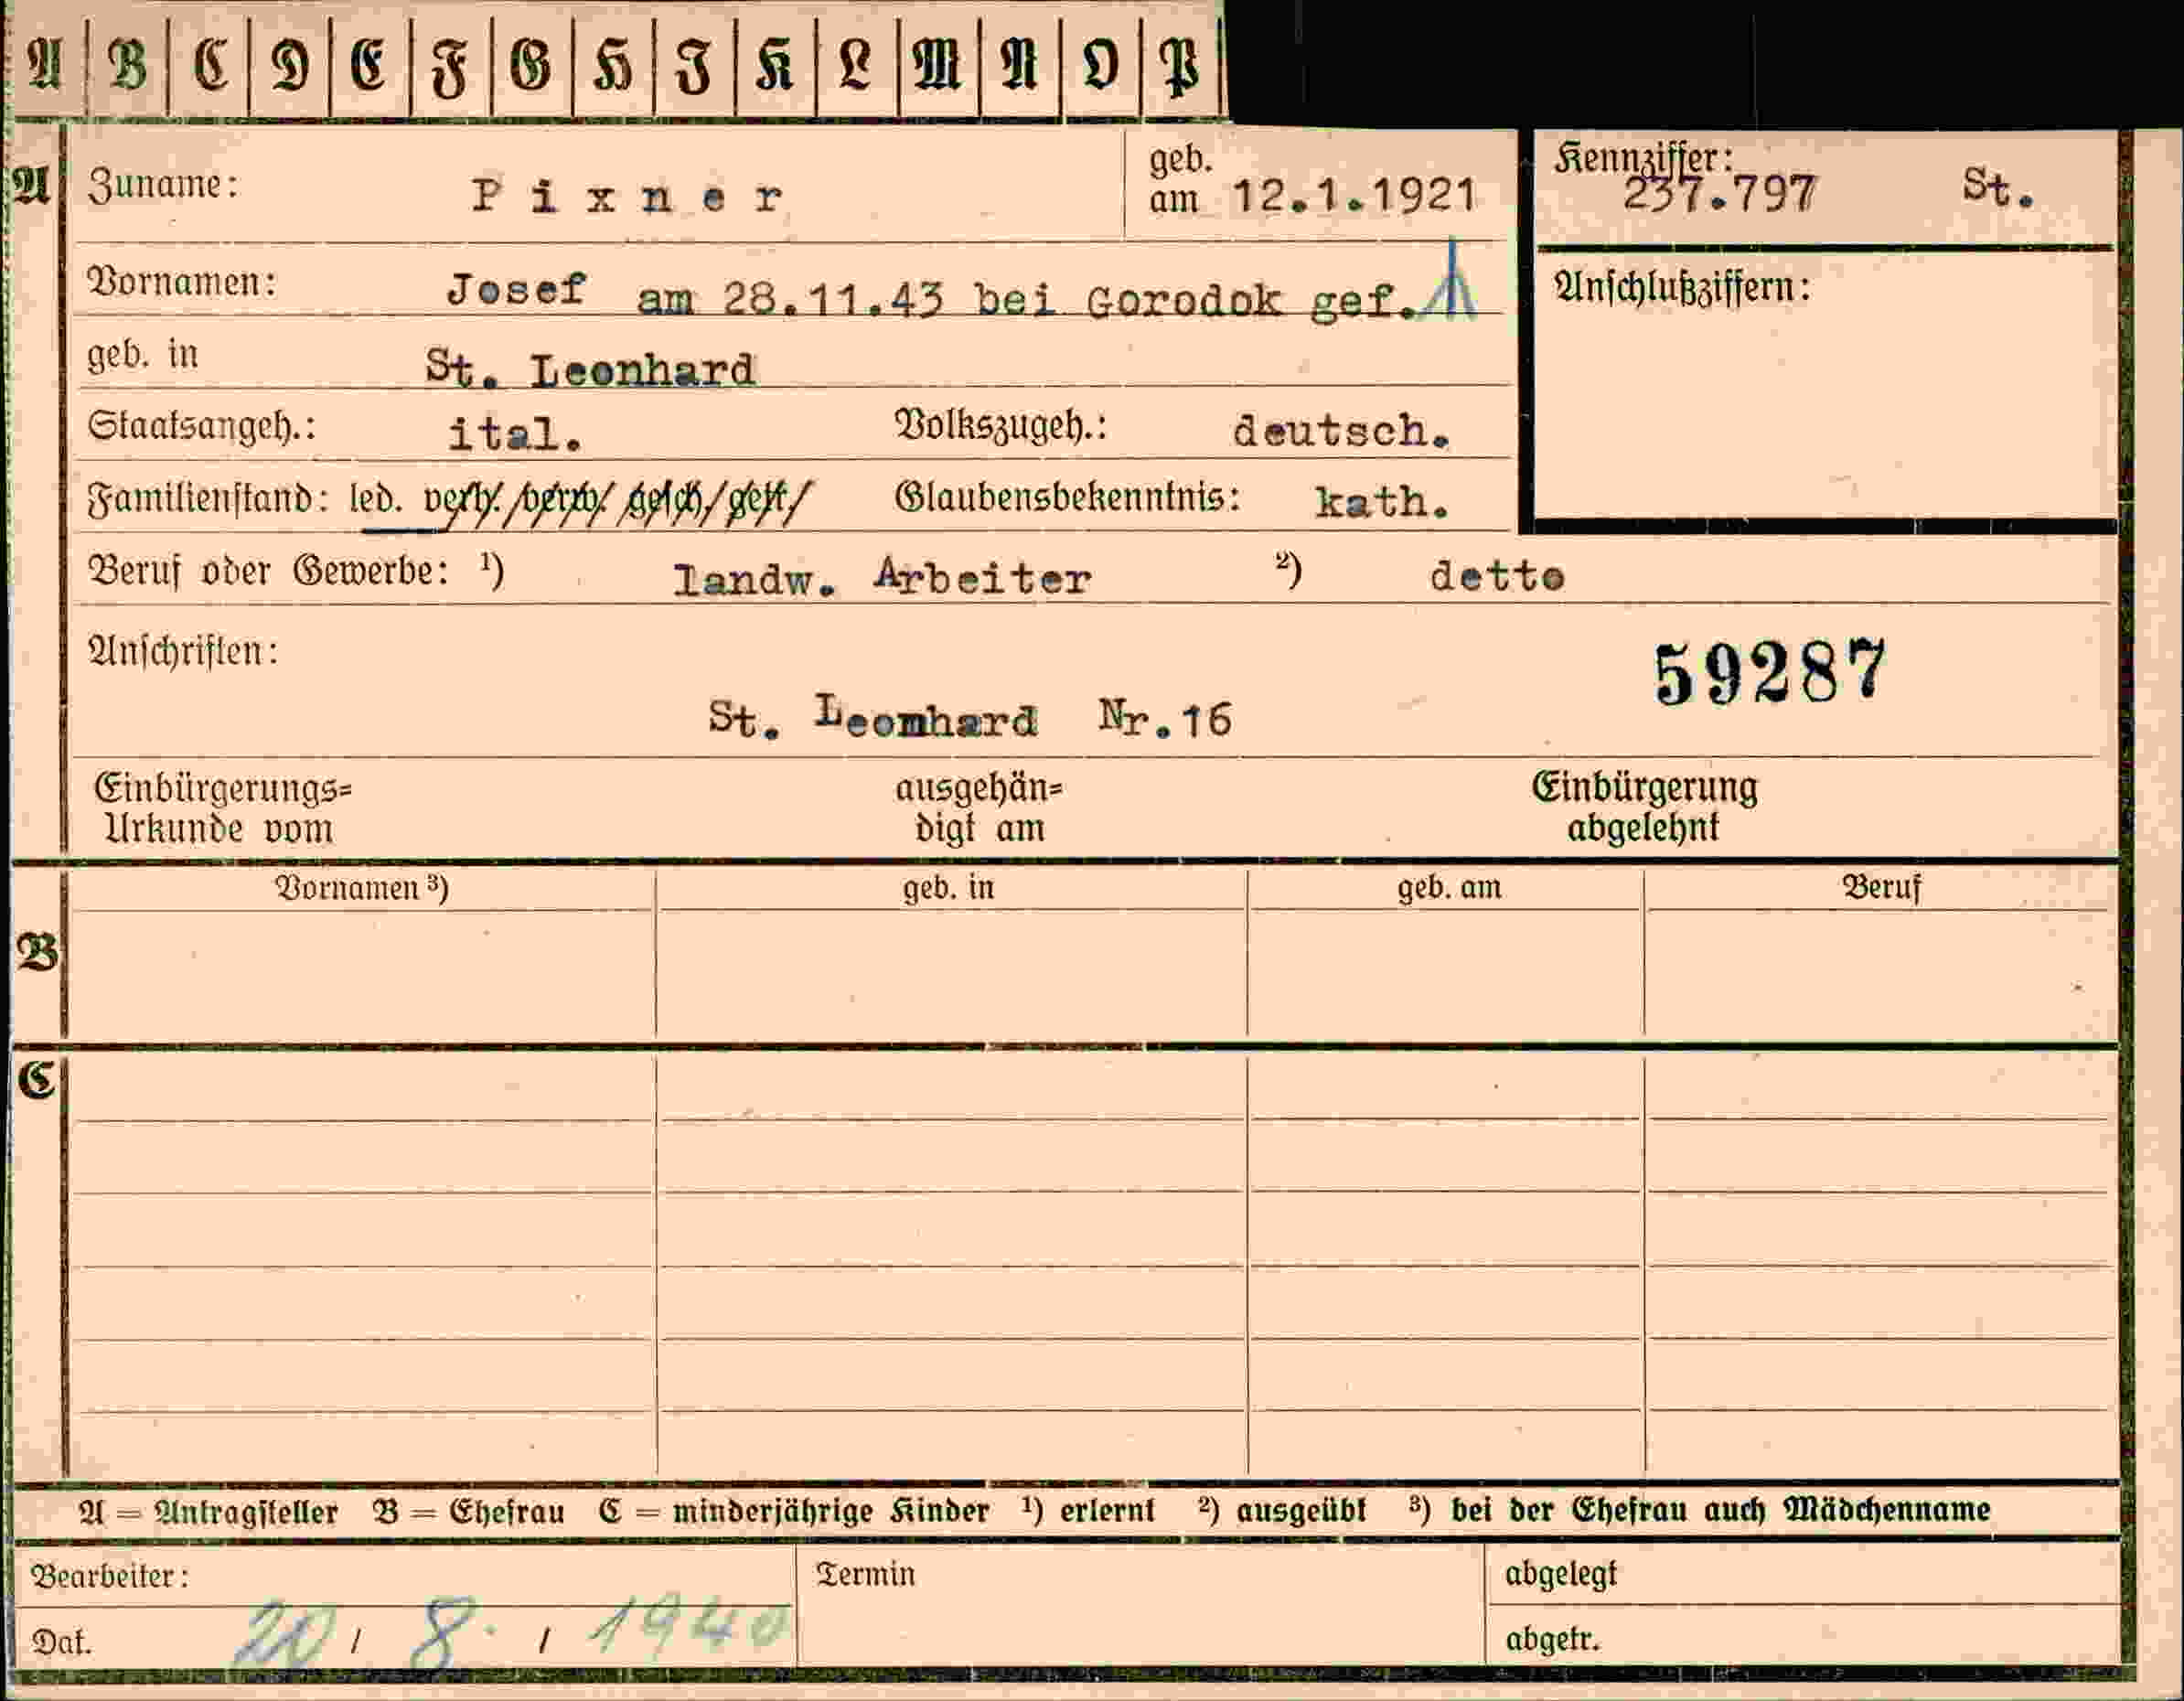 A B C D E F G H I K L M N O P
A Zuname: Pixner geb. am 12.1.1921 Kennziffer: 237.797 St.
Vornamen: Josef am 28.11.43 bei Gorodok gef. Anschlußziffern:
geb. in St. Leonhard
Staatsangeh.: ital. Volkszugeh.: deutsch.
Familienstand: led. verh./verw./gesch/getr/ Glaubensbekenntnis: kath.
Beruf oder Gewerbe: ¹) landw. Arbeiter ²) detto
Anschriften: 59287
St. Leonhard Nr.16
Einbürgerungs= ausgehän= Einbürgerung
Urkunde vom digt am abgelehnt
Vornamen ³) geb. in geb. am Beruf
B
C
A = Antragsteller B = Ehefrau C = minderjährige Kinder ¹) erlernt ²) ausgeübt ³) bei der Ehefrau auch Mädchenname
Bearbeiter: Termin abgelegt
Dat. 20 / 8. / 1940 abgetr.